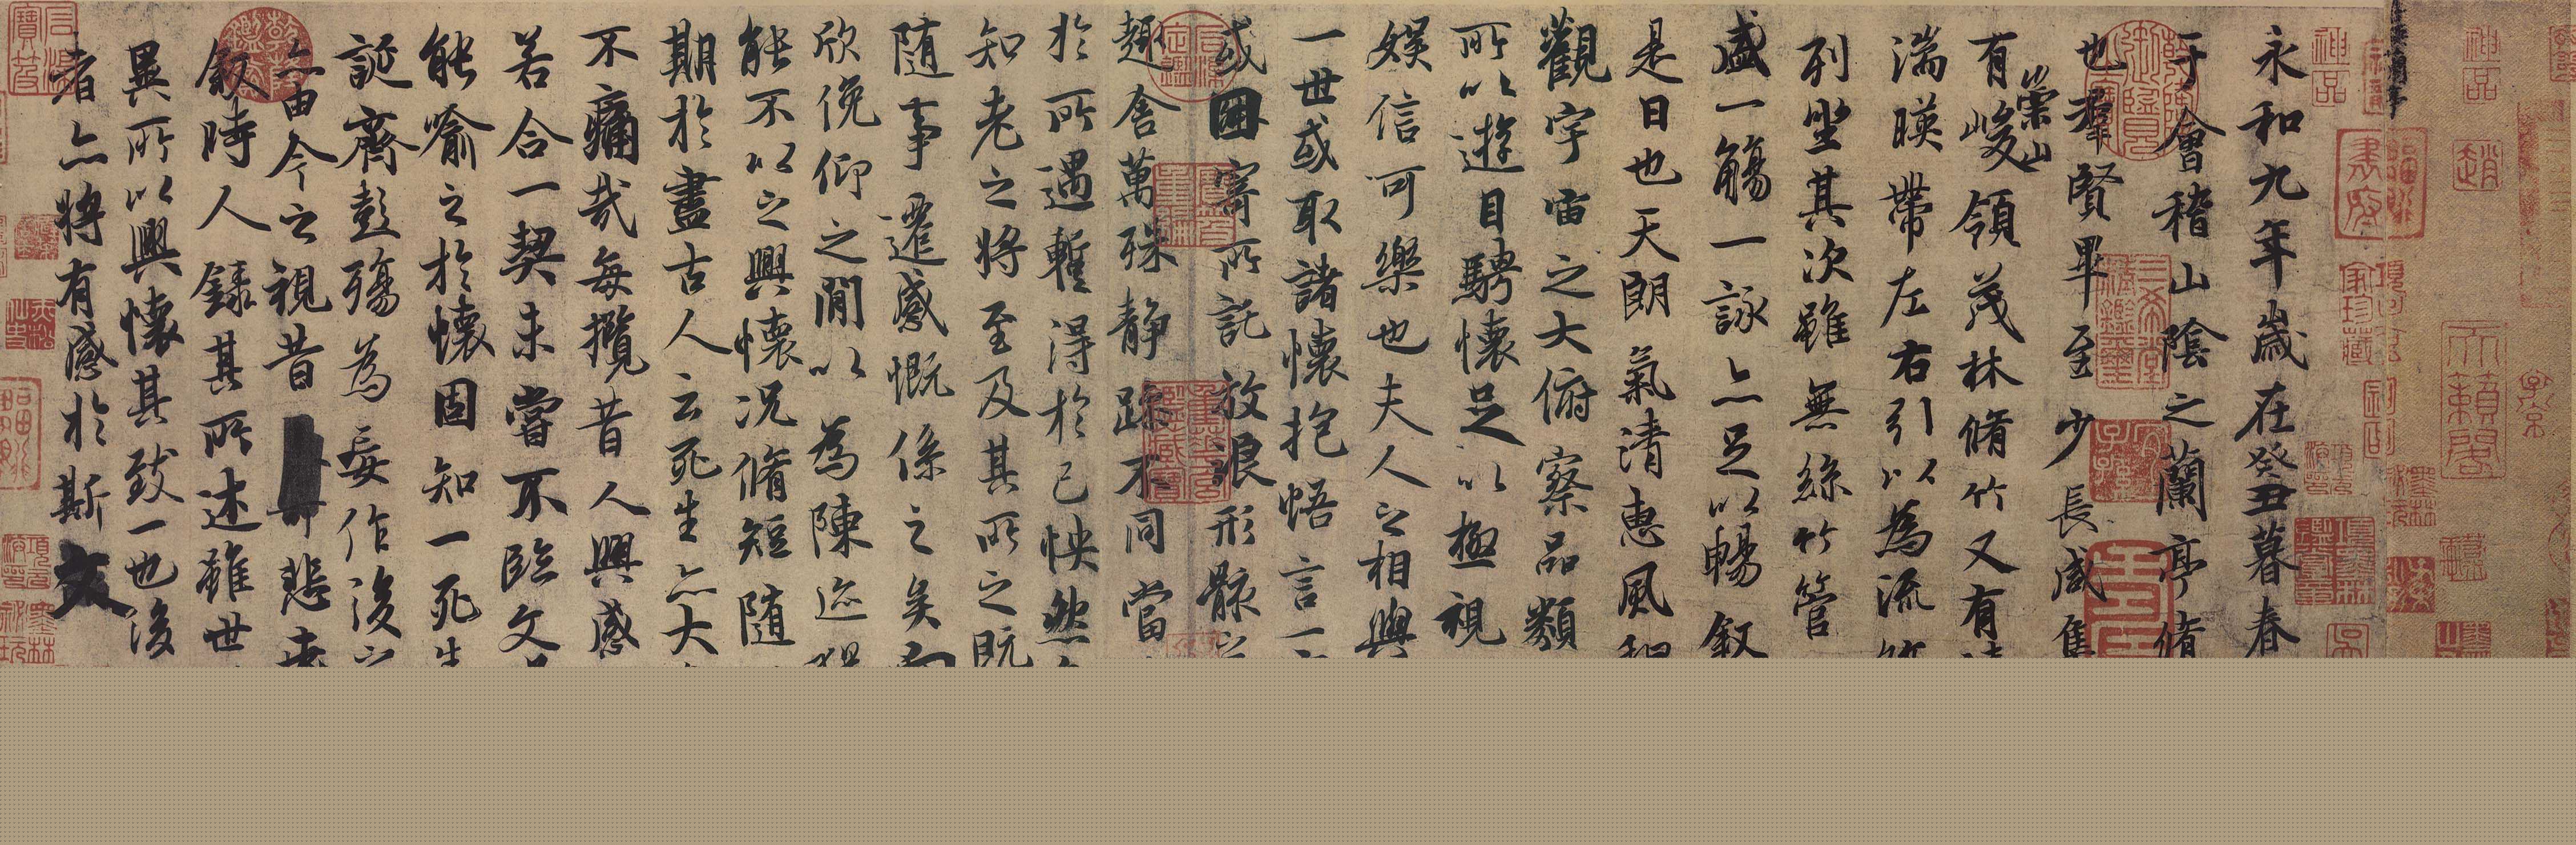 永和九年歲在癸丑暮春
于會稽山陰之蘭亭脩
也羣賢畢至少長咸
有崇山峻領茂林脩竹又有
湍暎帶左右引以為流
列坐其次雖無絲竹管
盛一觴一詠亦足以暢敘
是日也天朗氣清惠風和
觀宇宙之大俯察品類
所以遊目騁懷足以極視
娛信可樂也夫人之相與
一世或取諸懷抱悟言一
或因寄所託放浪形骸之
趣舍萬殊静躁不同當
於所遇蹔得於己怏然
知老之將至及其所之既
隨事遷感慨係之矣向
欣俛仰之閒以為陳迹
能不以之興懷況脩短隨
期於盡古人云死生亦大
不痛哉每攬昔人興感
若合一契未嘗不臨文
能喻之於懷固知一死生
誕齊彭殤為妄作後之
亦由今之視昔悲夫
敘時人錄其所述雖世
異所以興懷其致一也後
者亦將有感於斯文